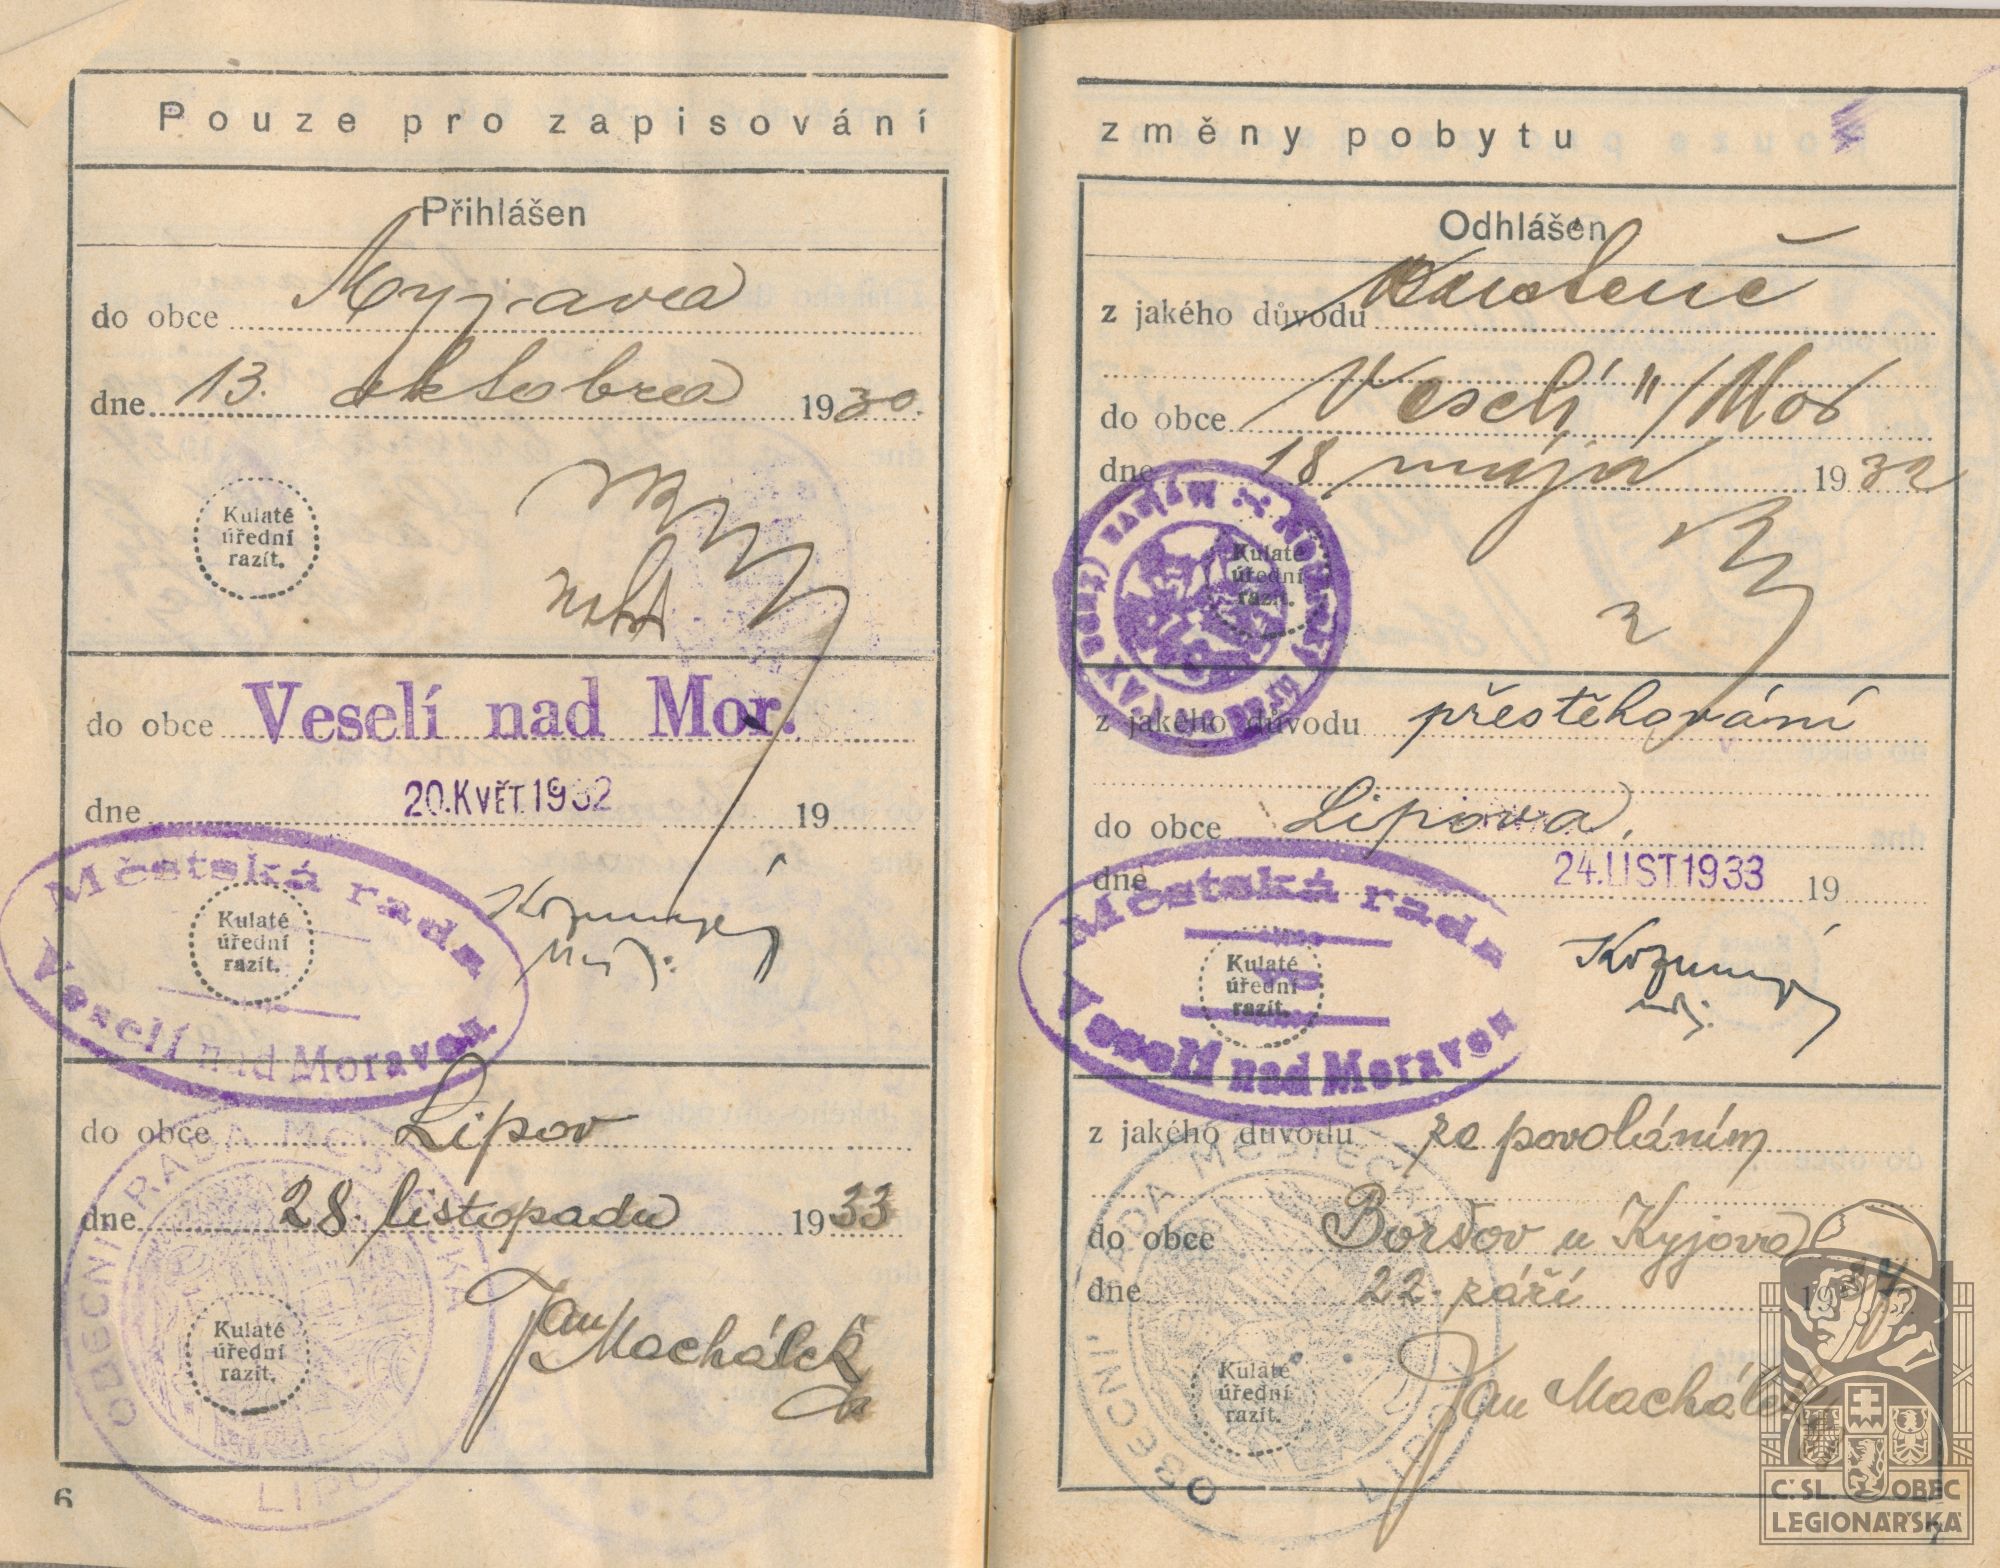 Pouze pro zapisování
Přihlášen
do obce Myjava
dne 13. oktobra 1930.
Kulaté
úřední
razít.
do obce Veselí nad Mor.
dne 20. KVĚT. 1932 19
Městská rada
Veselí nad Moravou
Kulaté
úřední
razít.
do obce Lipov
dne 28. listopadu 1933
OBECNÍ RADA MĚSTEČKA
LIPOV
Kulaté
úřední
razít.
Jan Machálek
6
změny pobytu
Odhlášen
z jakého důvodu
do obce Veselí n/Mor
dne 18 mája 1932
Kulaté
úřední
razít.
z jakého důvodu přestěhování
do obce Lipova,
dne 24. LIST. 1933 19
Městská rada
Veselí nad Moravou
Kulaté
úřední
razít.
z jakého důvodu za povoláním
do obce Boršov u Kyjova
dne 22. září 1934
OBECNÍ RADA MĚSTEČKA
LIPOV
Kulaté
úřední
razít.
Jan Machálek
Č.SL. OBEC
LEGIONÁŘSKÁ
7